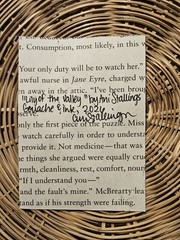 t. Consumption, most likely, in this v
"Your only duty will be to watch her."
awful nurse in Jane Eyre, charged w
en away in the attic. "I've been broug
"Lily of the Valley" by Ami Stallings
Gouache & ink, 2026
serve.
only the first piece of the puzzle. Miss
watch carefully in order to understa
provide it. Not medicine—that was
e things she argued were equally cru
rmth, cleanliness, rest, comfort, nouri
"If I understand you—"
and the fault's mine." McBrearty lea
and as if his strength were failing.